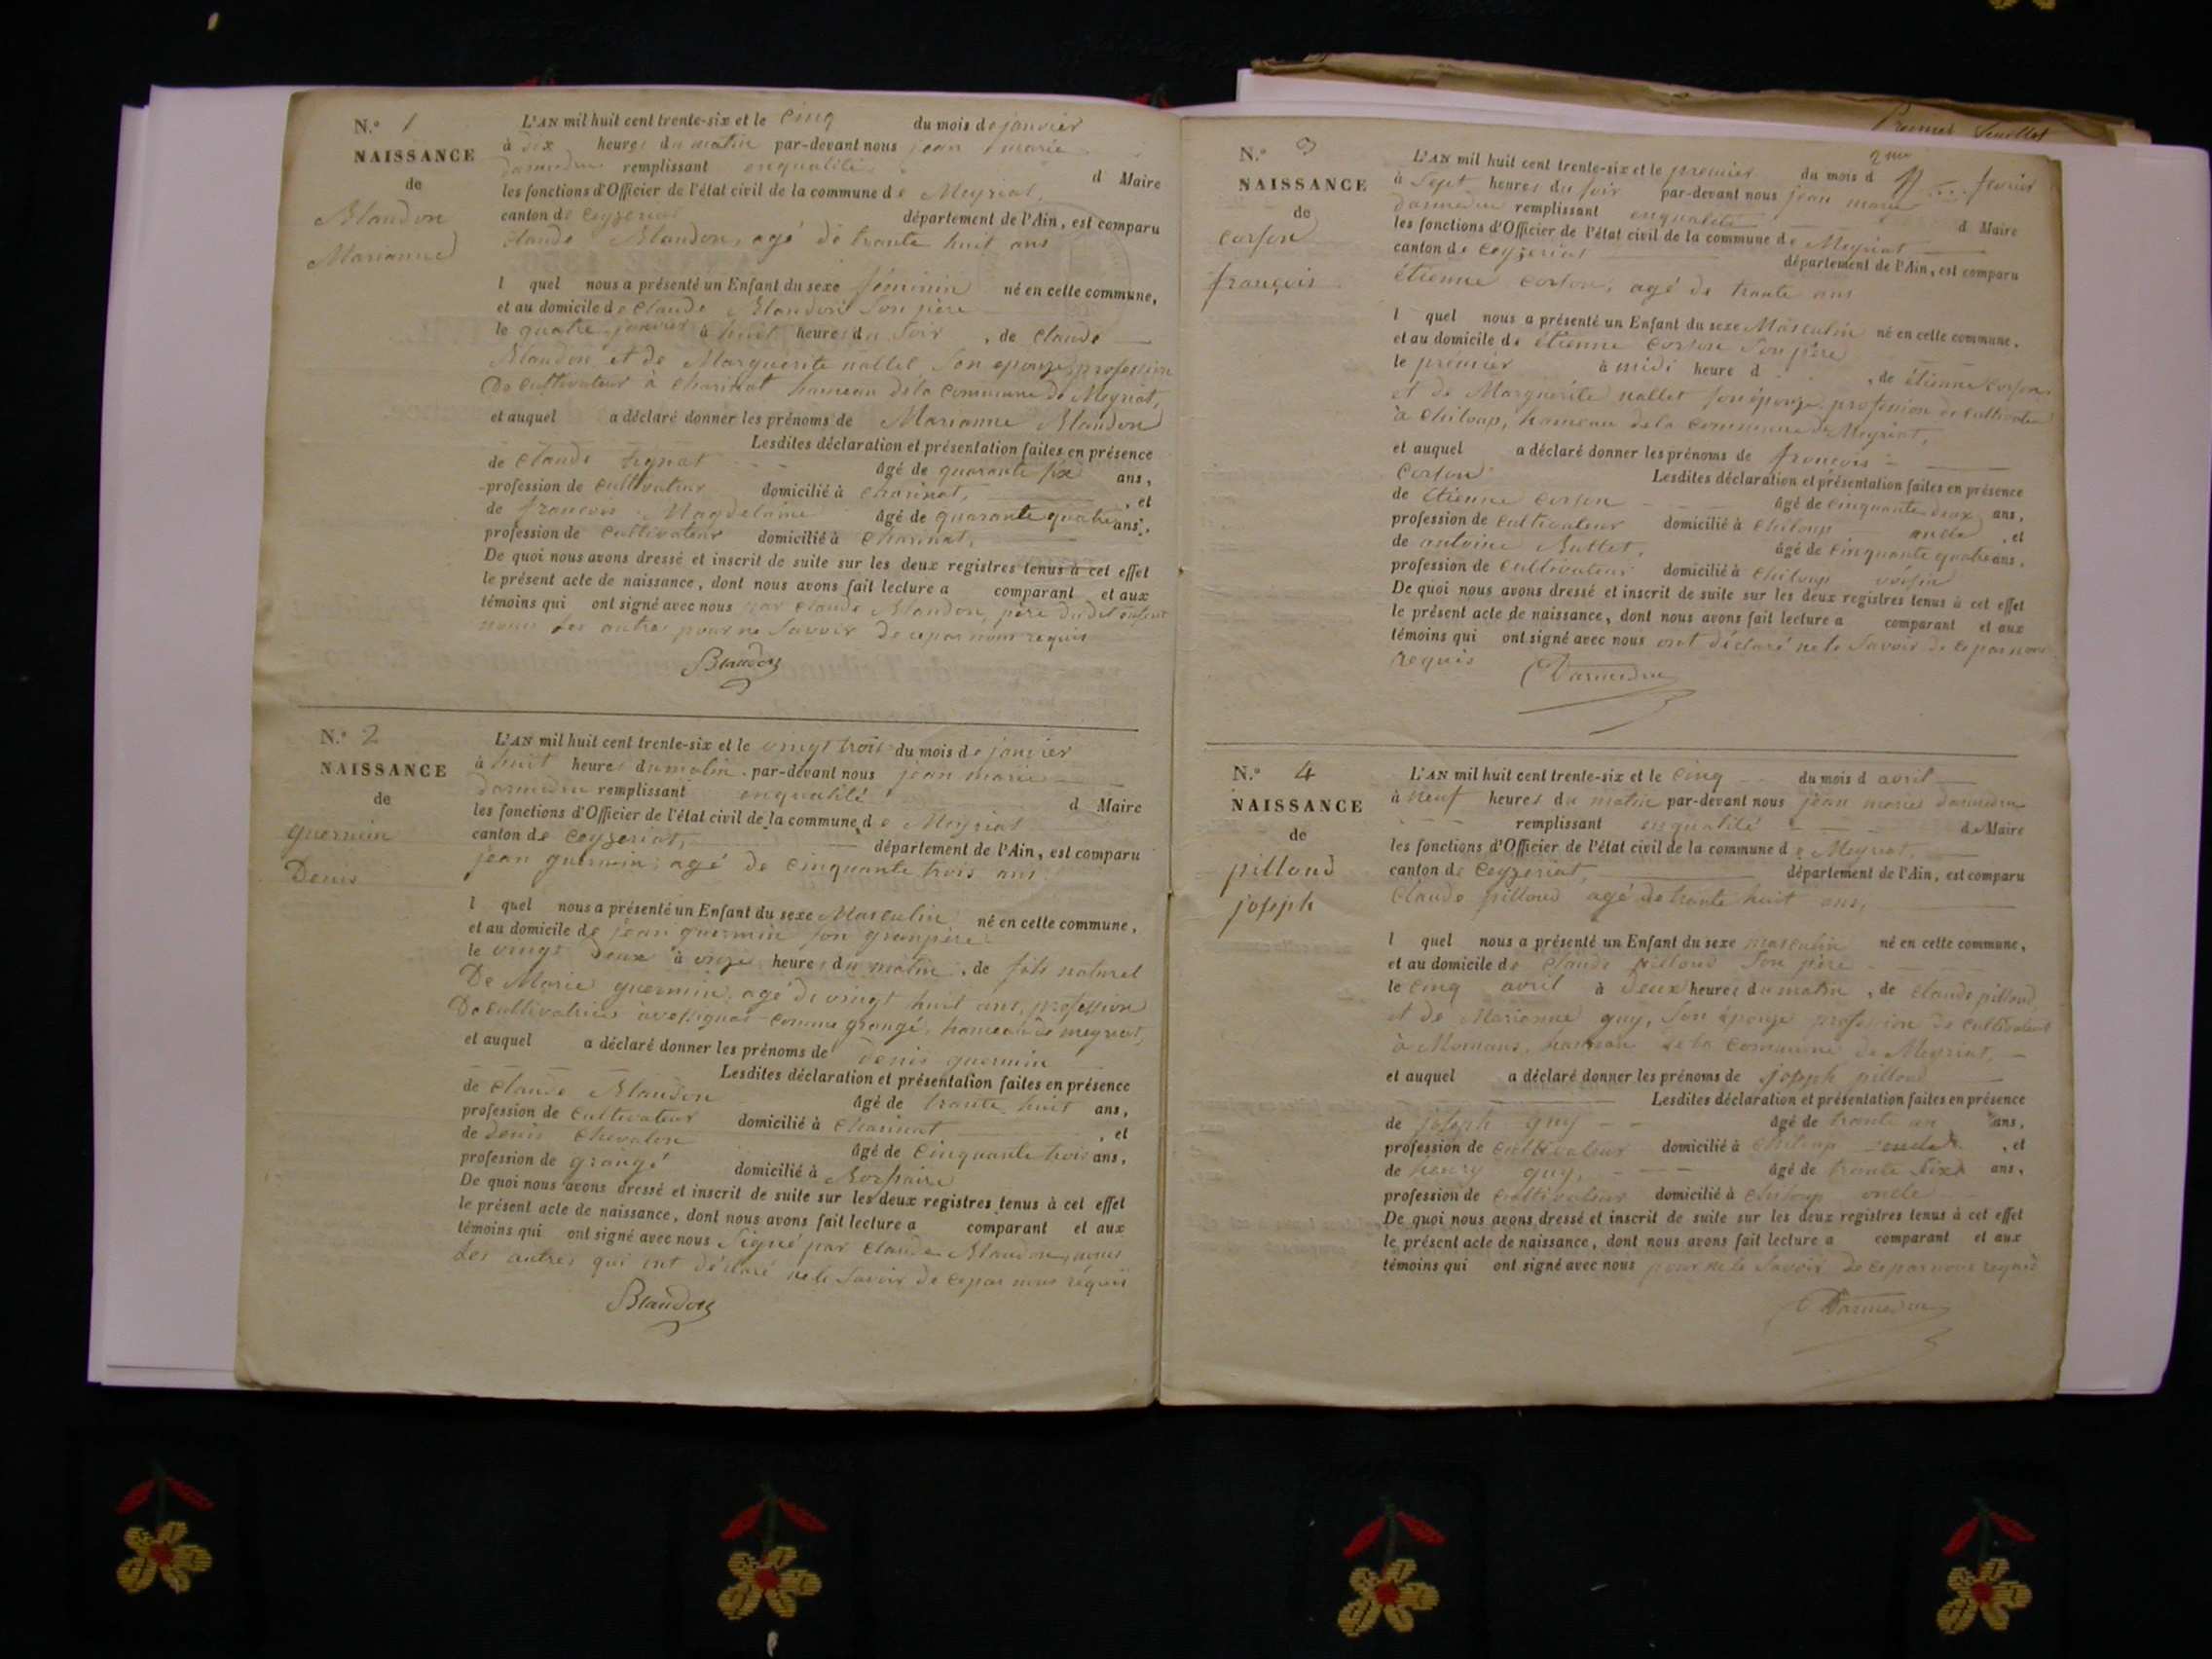 N.° 1
NAISSANCE
de
Blandon
Marianne
L'AN mil huit cent trente-six et le cinq du mois de janvier
à dix heures du matin par-devant nous jean marie
remplissant en qualité d Maire
les fonctions d'Officier de l'état civil de la commune de Meyriat,
canton de Ceyzeriat département de l'Ain, est comparu
claude Blandon, agé de trante huit ans
l quel nous a présenté un Enfant du sexe féminin né en cette commune,
et au domicile de claude Blandon Son père
le quatre janvier à huit heures du Soir, de claude
Blandon et de Marguerite nallet Son epouze, profession
De Cultivateur à Charinat hameau de la Commune de Meyriat,
et auquel a déclaré donner les prénoms de Marianne Blandon
Lesdites déclaration et présentation faites en présence
de Claude âgé de quarante six ans,
profession de Cultivateur domicilié à Charinat, et
de francois Magdelaine âgé de quarante quatre ans,
profession de Cultivateur domicilié à Charinat,
De quoi nous avons dressé et inscrit de suite sur les deux registres tenus à cet effet
le présent acte de naissance, dont nous avons fait lecture a comparant et aux
témoins qui ont signé avec nous par Claude Blandon, père dudit enfant
nous Les autres pour ne Savoir de ce par nous requis
Blandon
N.° 2
NAISSANCE
de
guermin
Denis
L'AN mil huit cent trente-six et le vingt trois du mois de janvier
à huit heures du matin par-devant nous jean marie
remplissant en qualité d Maire
les fonctions d'Officier de l'état civil de la commune de Meyriat
canton de Ceyzeriat, département de l'Ain, est comparu
jean guermin, agé de Cinquante trois ans
l quel nous a présenté un Enfant du sexe Masculin né en cette commune,
et au domicile de jean guermin Son granpère
le vingt Deux à onze heures du matin, de fils naturel
De Marie guermin, agé de vingt huit ans, profession
De Cultivatrice grangé, hameau de meyriat,
et auquel a déclaré donner les prénoms de Denis guermin
Lesdites déclaration et présentation faites en présence
de Claude Blandon âgé de trante huit ans,
profession de Cultivateur domicilié à Charinat, et
de denis Chevalon âgé de Cinquante trois ans,
profession de grangé domicilié à
De quoi nous avons dressé et inscrit de suite sur les deux registres tenus à cet effet
le présent acte de naissance, dont nous avons fait lecture a comparant et aux
témoins qui ont signé avec nous Signé par Claude Blandon, nous
Les autres qui ont déclaré ne le Savoir de ce par nous réquis
Blandon
Premier feuillet
2me
N.° 3
NAISSANCE
de
Corson
françois
L'AN mil huit cent trente-six et le premier du mois d fevrier
à Sept heures du soir par-devant nous jean marie
remplissant en qualité d Maire
les fonctions d'Officier de l'état civil de la commune de Meyriat
canton de Ceyzeriat département de l'Ain, est comparu
étienne Corson, agé de trante ans
l quel nous a présenté un Enfant du sexe Masculin né en cette commune.
et au domicile de étienne Corson Son père
le premier à midi heure d , de étienne Corson
et de Marguerite nallet son épouze, profession de Cultivateur
à Chiloup, hameau de la Commune de Meyriat,
et auquel a déclaré donner les prénoms de françois
Corson Lesdites déclaration et présentation faites en présence
de étienne Corson âgé de Cinquante deux ans,
profession de Cultivateur domicilié à Chiloup oncle, et
de antoine Buttet, âgé de Cinquante quatre ans,
profession de Cultivateur domicilié à Chiloup voisin
De quoi nous avons dressé et inscrit de suite sur les deux registres tenus à cet effet
le présent acte de naissance, dont nous avons fait lecture a comparant et aux
témoins qui ont signé avec nous ont déclaré ne le Savoir de ce par nous
requis
N.° 4
NAISSANCE
de
pilloud
joseph
L'AN mil huit cent trente-six et le cinq du mois d avril
à neuf heures du matin par-devant nous jean marie
remplissant en qualité de Maire
les fonctions d'Officier de l'état civil de la commune de Meyriat,
canton de Ceyzeriat, département de l'Ain, est comparu
Claude pilloud agé de trante huit ans,
l quel nous a présenté un Enfant du sexe masculin né en cette commune,
et au domicile de Claude pilloud Son père
le Cinq avril à Deux heures du matin, de Claude pilloud
et de Marianne guy, Son épouze profession de Cultivateur
à Momans, hameau de la Commune de Meyriat,
et auquel a déclaré donner les prénoms de joseph pilloud
Lesdites déclaration et présentation faites en présence
de joseph guy âgé de trante un ans,
profession de Cultivateur domicilié à Chiloup oncle, et
de henry guy, âgé de trante Six ans,
profession de Cultivateur domicilié à Chiloup oncle
De quoi nous avons dressé et inscrit de suite sur les deux registres tenus à cet effet
le présent acte de naissance, dont nous avons fait lecture a comparant et aux
témoins qui ont signé avec nous pour ne le Savoir de ce par nous requis